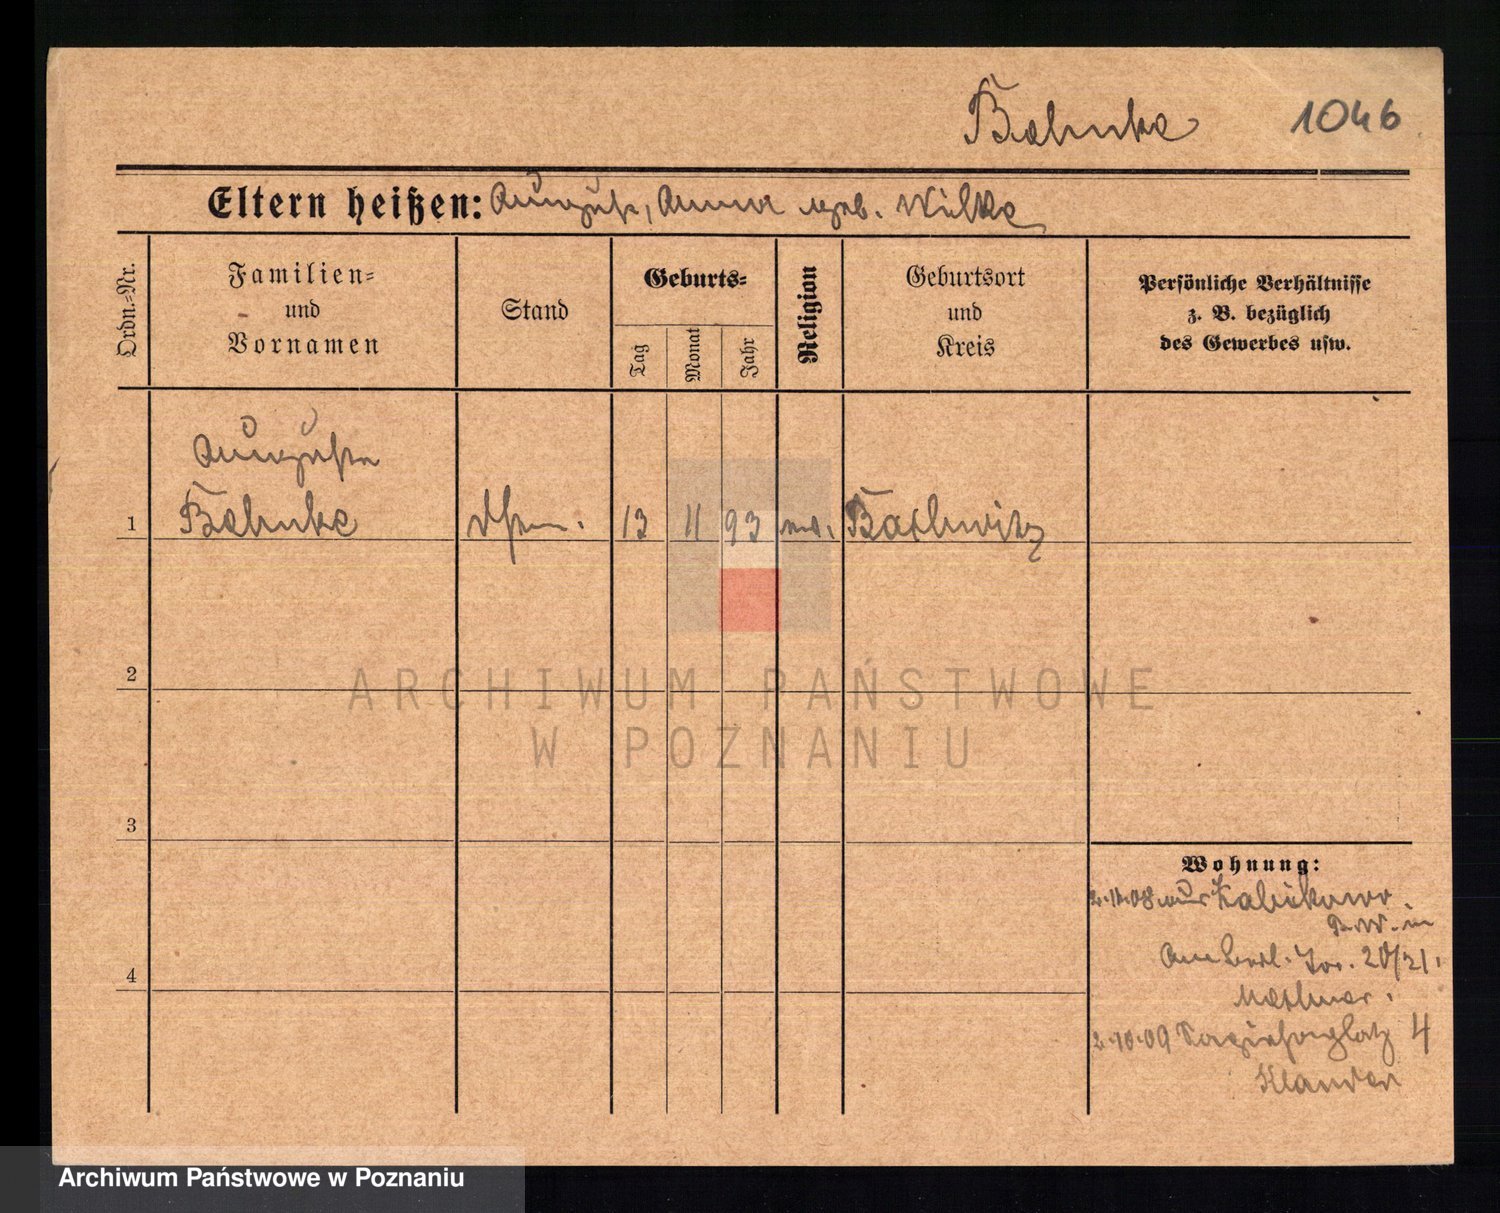 Behnke 1046
Eltern heißen: August, Anna geb. Wilke
Ordn.=Nr.
Familien=
und
Vornamen
Stand
Geburts=
Tag
Monat
Jahr
Religion
Geburtsort
und
Kreis
Persönliche Verhältnisse
z. B. bezüglich
des Gewerbes usw.
Auguste
1 Behnke 13 11 93
2
3
4
Wohnung:
2.11.08 aus
Am Berl. Tor. 20/21.
2.10.09 4
ARCHIWUM PAŃSTWOWE
W POZNANIU
Archiwum Państwowe w Poznaniu